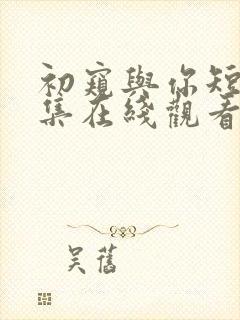 初窺與你短
集在綫觀看
吴舊